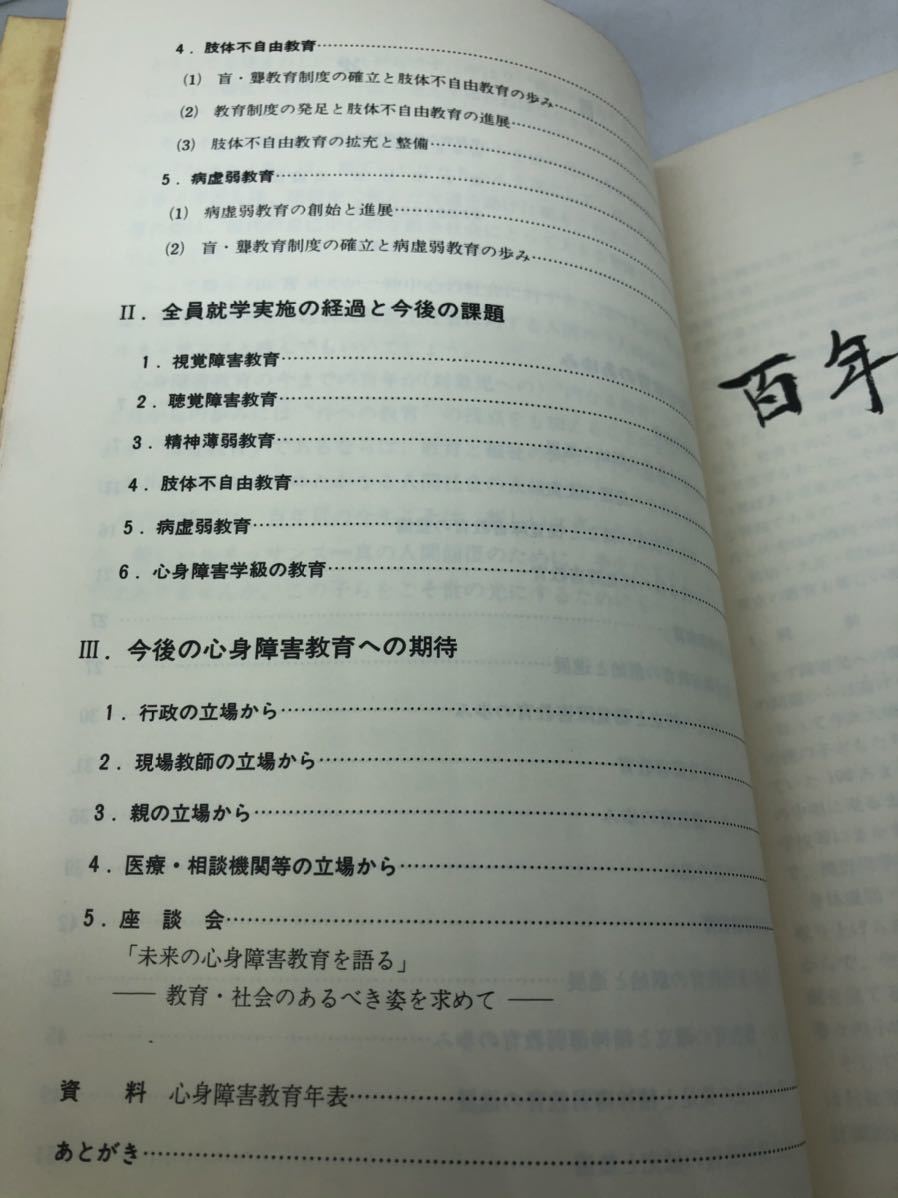 4．肢体不自由教育
(1) 盲・聾教育制度の確立と肢体不自由教育の歩み
(2) 教育制度の発足と肢体不自由教育の進展
(3) 肢体不自由教育の拡充と整備
5．病虚弱教育
(1) 病虚弱教育の創始と進展
(2) 盲・聾教育制度の確立と病虚弱教育の歩み
II．全員就学実施の経過と今後の課題
1．視覚障害教育
2．聴覚障害教育
3．精神薄弱教育
4．肢体不自由教育
5．病虚弱教育
6．心身障害学級の教育
III．今後の心身障害教育への期待
1．行政の立場から
2．現場教師の立場から
3．親の立場から
4．医療・相談機関等の立場から
5．座　談　会
「未来の心身障害教育を語る」
── 教育・社会のあるべき姿を求めて ──
資　料　心身障害教育年表
あとがき
百年